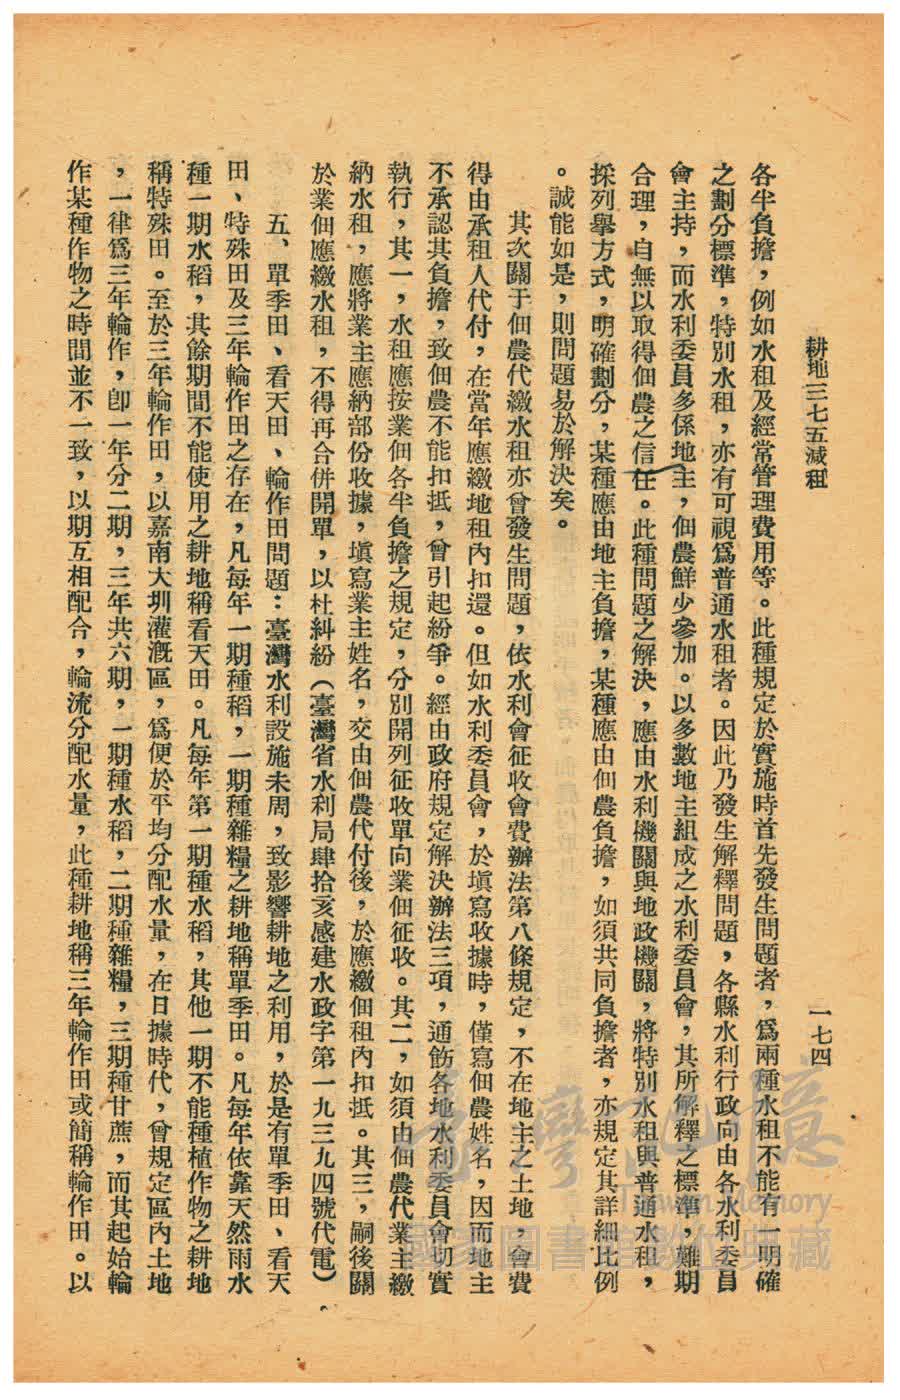 耕地三七五減租
一七四
各半負擔，例如水租及經常管理費用等。此種規定於實施時首先發生問題者，爲兩種水租不能有一明確
之劃分標準，特別水租，亦有可視爲普通水租者。因此乃發生解釋問題，各縣水利行政向由各水利委員
會主持，而水利委員多係地主，佃農鮮少參加。以多數地主組成之水利委員會，其所解釋之標準，難期
合理，自無以取得佃農之信任。此種問題之解決，應由水利機關與地政機關，將特別水租與普通水租，
採列舉方式，明確劃分，某種應由地主負擔，某種應由佃農負擔，如須共同負擔者，亦規定其詳細比例
。誠能如是，則問題易於解決矣。
其次關于佃農代繳水租亦曾發生問題，依水利會征收會費辦法第八條規定，不在地主之土地，會費
得由承租人代付，在當年應繳地租內扣還。但如水利委員會，於塡寫收據時，僅寫佃農姓名，因而地主
不承認其負擔，致佃農不能扣抵，曾引起紛爭。經由政府規定解決辦法三項，通飭各地水利委員會切實
執行，其一，水租應按業佃各半負擔之規定，分別開列征收單向業佃征收。其二，如須由佃農代業主繳
納水租，應將業主應納部份收據，塡寫業主姓名，交由佃農代付後，於應繳佃租內扣抵。其三，嗣後關
於業佃應繳水租，不得再合併開單，以杜糾紛（臺灣省水利局肆拾亥感建水政字第一九三九四號代電）
。
五、單季田、看天田、輪作田問題：臺灣水利設施未周，致影響耕地之利用，於是有單季田、看天
田、特殊田及三年輪作田之存在，凡每年一期種稻，一期種雜糧之耕地稱單季田。凡每年依靠天然雨水
種一期水稻，其餘期間不能使用之耕地稱看天田。凡每年第一期種水稻，其他一期不能種植作物之耕地
稱特殊田。至於三年輪作田，以嘉南大圳灌漑區，爲便於平均分配水量，在日據時代，曾規定區內土地
，一律爲三年輪作，卽一年分二期，三年共六期，一期種水稻，二期種雜糧，三期種甘蔗，而其起始輪
作某種作物之時間並不一致，以期互相配合，輪流分配水量，此種耕地稱三年輪作田或簡稱輪作田。以
臺灣記憶
Taiwan Memory
國家圖書館數位典藏